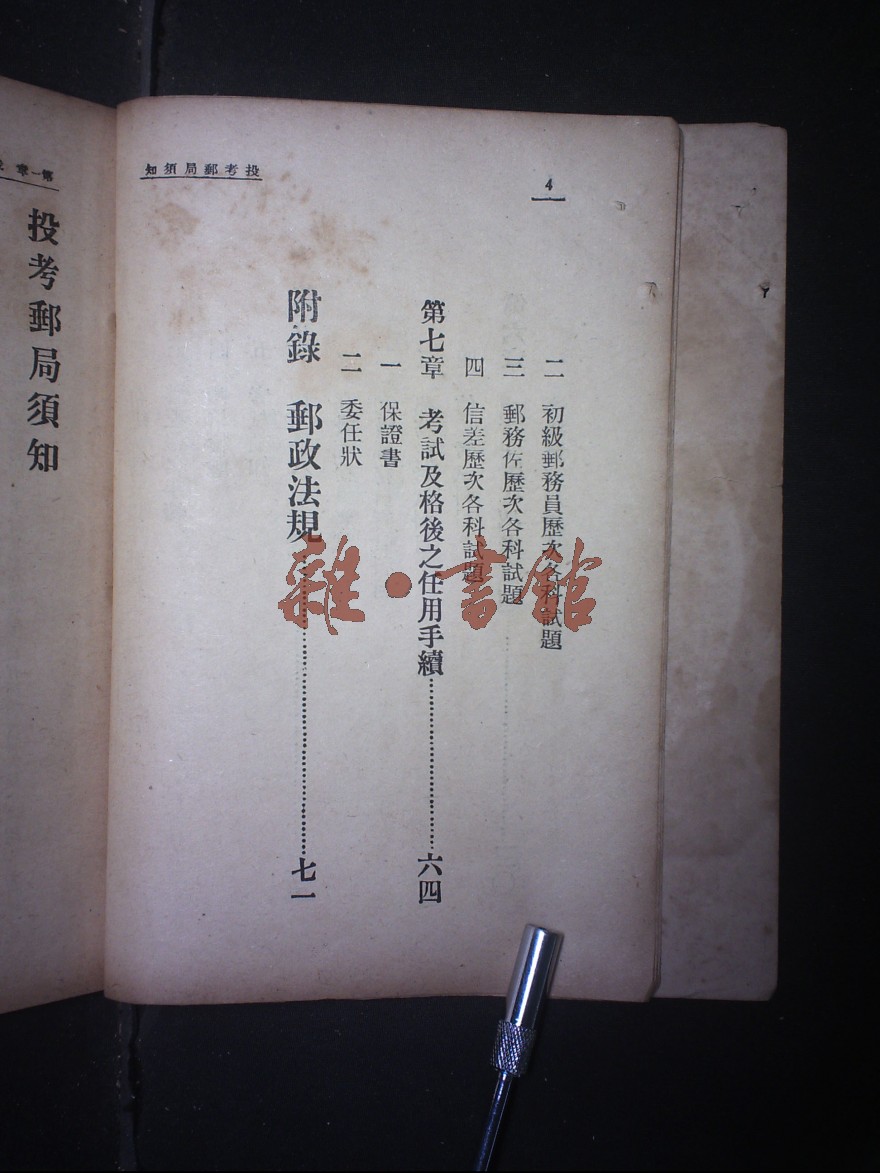 投考郵局須知
4
二　初級郵務員歷次各科試題
三　郵務佐歷次各科試題
四　信差歷次各科試題
第七章　考試及格後之任用手續……六四
一　保證書
二　委任狀
附錄　郵政法規……七一
雜·書館
第一章
投考郵局須知